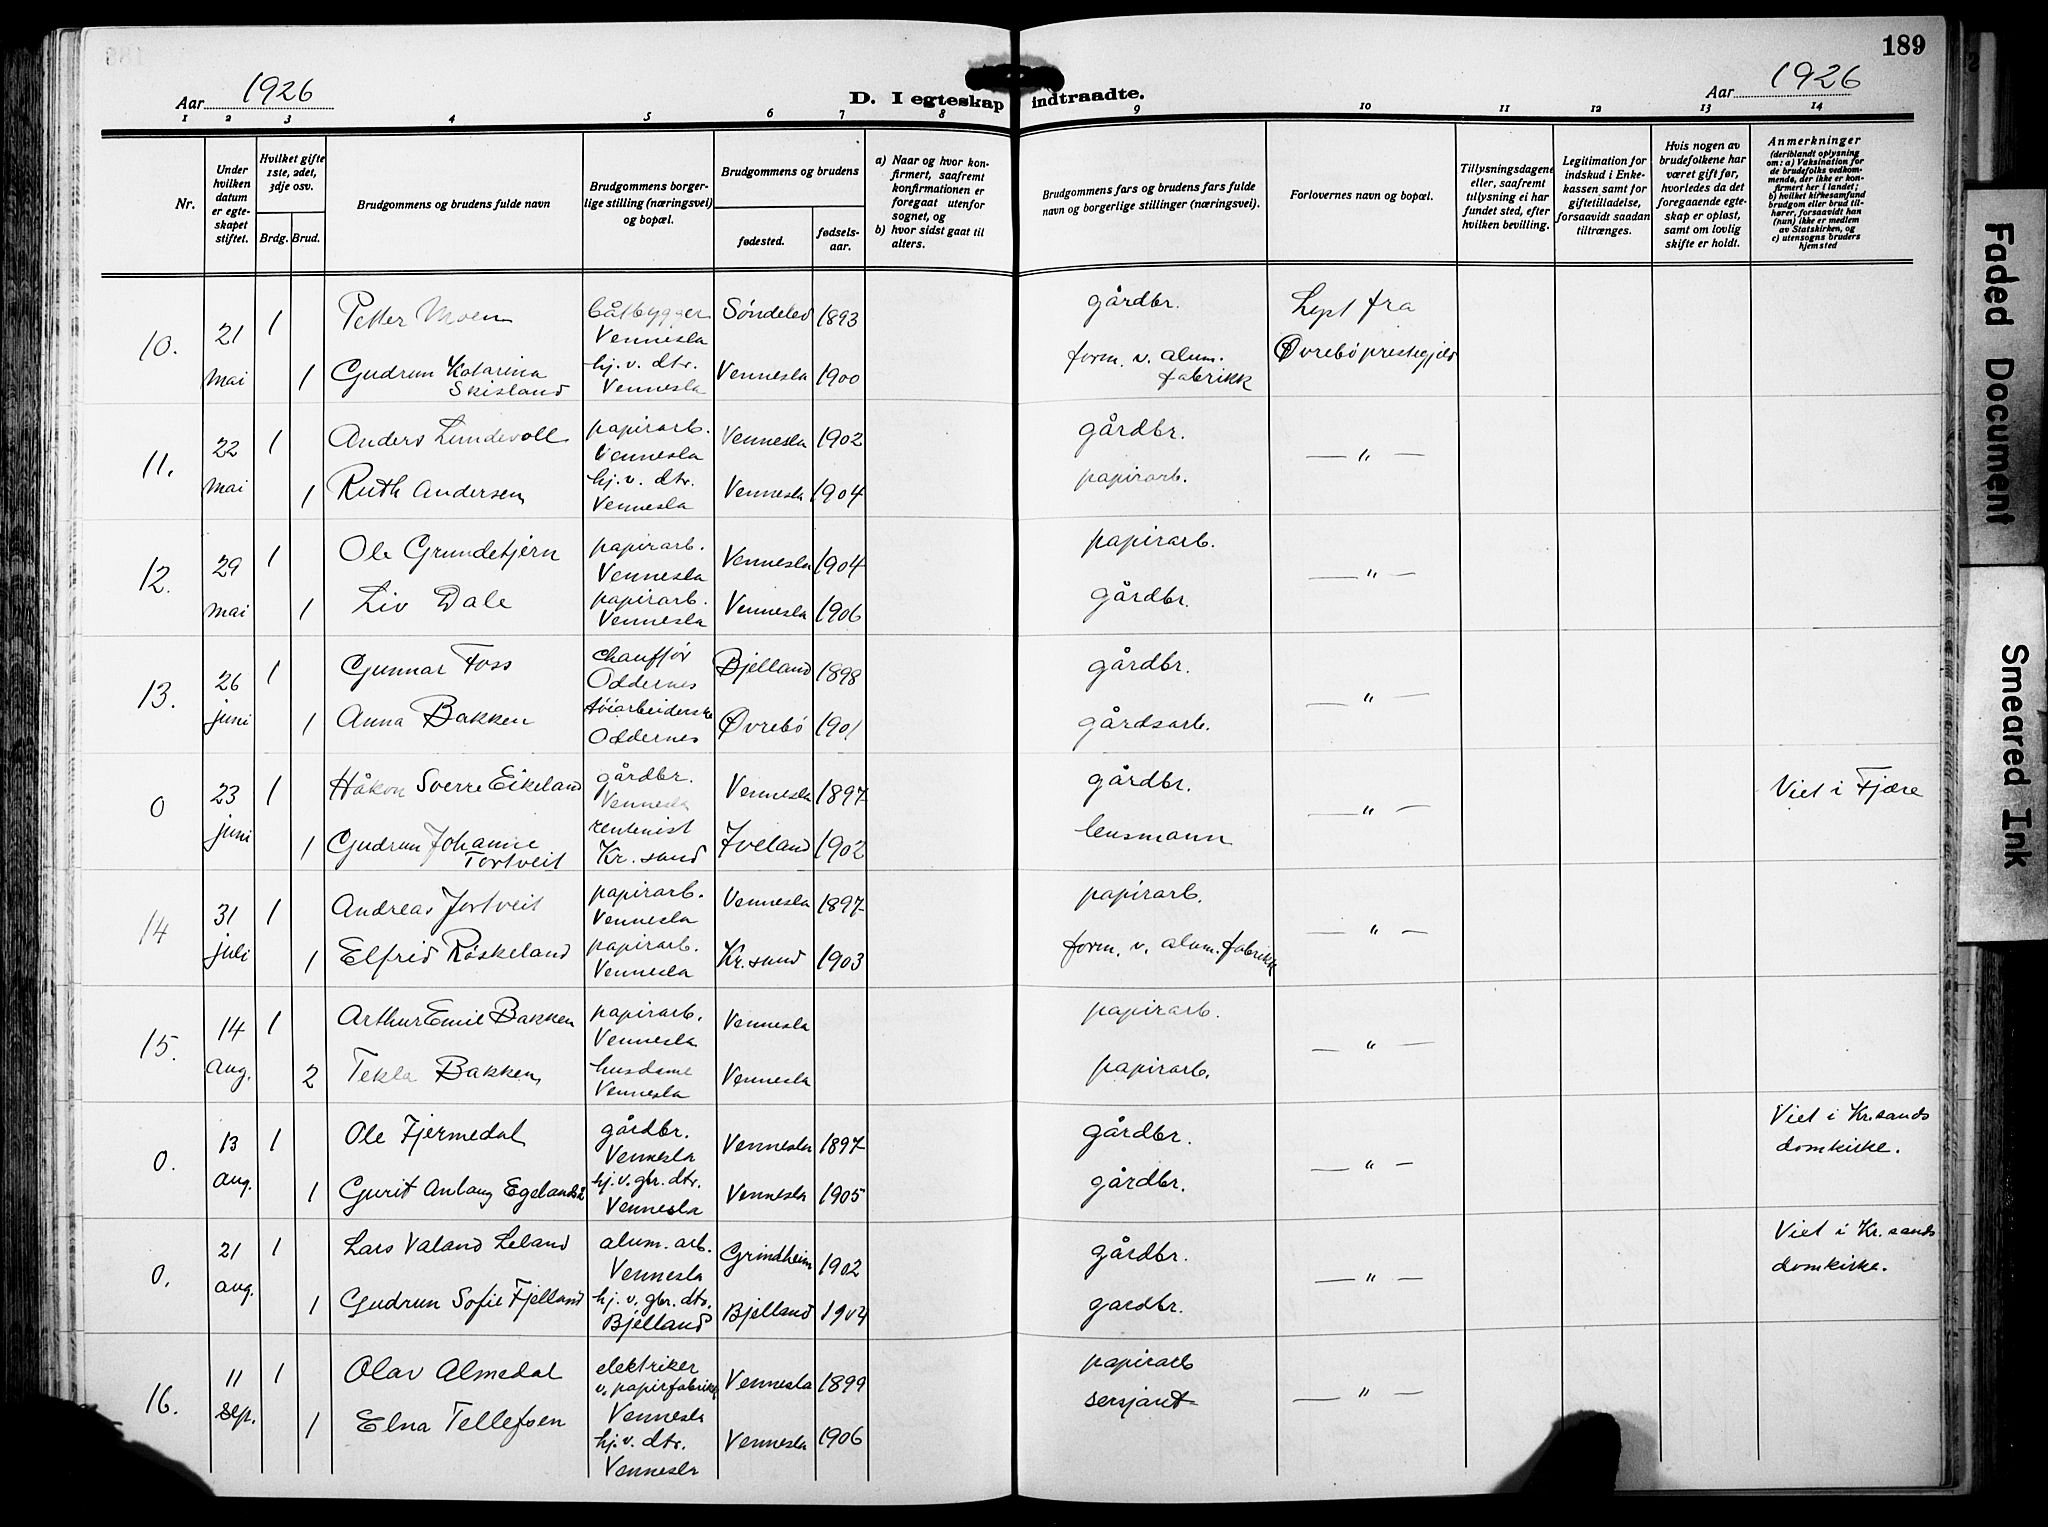 189
Aar 1926
D. I egteskap indtraadte.
Aar 1926
1 2 3 4 5 6 7 8 9 10 11 12 13 14
Nr.
Under hvilken datum er egteskapet stiftet.
Hvilket gifte 1ste, 2det, 3dje osv.
Brdg. Brud.
Brudgommens og brudens fulde navn
Brudgommens borgerlige stilling (næringsvei) og bopæl.
Brudgommens og brudens
fødested.
fødselsaar.
a) Naar og hvor konfirmert, saafremt konfirmationen er foregaat utenfor sognet, og
b) hvor sidst gaat til alters.
Brudgommens fars og brudens fars fulde navn og borgerlige stillinger (næringsvei).
Forlovernes navn og bopæl.
Tillysningsdagene eller, saafremt tillysning ei har fundet sted, efter hvilken bevilling.
Legitimation for indskud i Enkekassen samt for giftetilladelse, forsaavidt saadan tiltrænges.
Hvis nogen av brudefolkene har været gift før, hvorledes da det foregaaende egteskap er opløst, samt om lovlig skifte er holdt.
Anmerkninger
(deriblandt oplysning om: a) Vaksination for de brudefolks vedkommende, der ikke er konfirmert her i landet; b) hvilket kirkesamfund brudgom eller brud tilhører, forsaavidt han (hun) ikke er medlem av Statskirken, og c) utensogns bruders hjemsted
10. 21 mai 1 Petter Moen båtbygger Vennesla Søndeled 1893 gårdbr. Løst fra
1 Gudrun Katarina Skisland hj. v. dtr. Vennesla Vennesla 1900 form. v. alum. fabrikk Øvrebø prestegjeld
11. 22 mai 1 Anders Lundevoll papirarb. Vennesla Vennesla 1902 gårdbr. — " —
1 Ruth Andersen hj. v. dtr. Vennesla Vennesla 1904 papirarb.
12. 29 mai 1 Ole Grundetjern papirarb. Vennesla Vennesla 1904 papirarb. — " —
1 Liv Dale papirarb. Vennesla Vennesla 1906 gårdbr.
13. 26 juni 1 Gunnar Foss chauffør Oddernes Bjelland 1898 gårdbr. — " —
1 Anna Bakken tøiarbeiderske Oddernes Øvrebø 1901 gårdsarb.
0 23 juni 1 Håkon Sverre Eikeland gårdbr. Vennesla Vennesla 1897 gårdbr. — " — Viet i Fjære
1 Gudrun Johanne Tortveit rentenist Kr. sand Iveland 1902 lensmann
14 31 juli 1 Andreas Jortveit papirarb. Vennesla Vennesla 1897 papirarb. — " —
1 Elfrid Røskeland papirarb. Vennesla Kr. sand 1903 form. v. alum. fabrikk
15. 14 Aug. 1 Arthur Emil Bakken papirarb. Vennesla Vennesla papirarb. — " —
2 Tekla Bakken husdame Vennesla Vennesla papirarb.
0. 13 aug. 1 Ole Fjermedal gårdbr. Vennesla Vennesla 1897 gårdbr. — " — Viet i Kr.sands domkirke.
1 Gurit Anlaug Egelandså hj. v. gbr. dtr. Vennesla Vennesla 1905 gårdbr.
0. 21 aug. 1 Lars Valand Leland alum. arb. Vennesla Grindheim 1902 gårdbr. — " — Viet i Kr. sands domkirke.
1 Gudrun Sofie Fjelland hj. v. gbr. dtr. Bjelland Bjelland 1904 gardbr.
16. 11 sep. 1 Olav Almedal elektriker v. papirfabrikk Vennesla Vennesla 1899 papirarb — " —
1 Elna Tellefsen hj. v. dtr. Vennesla Vennesla 1906 sersjant
Faded Document
Smeared Ink